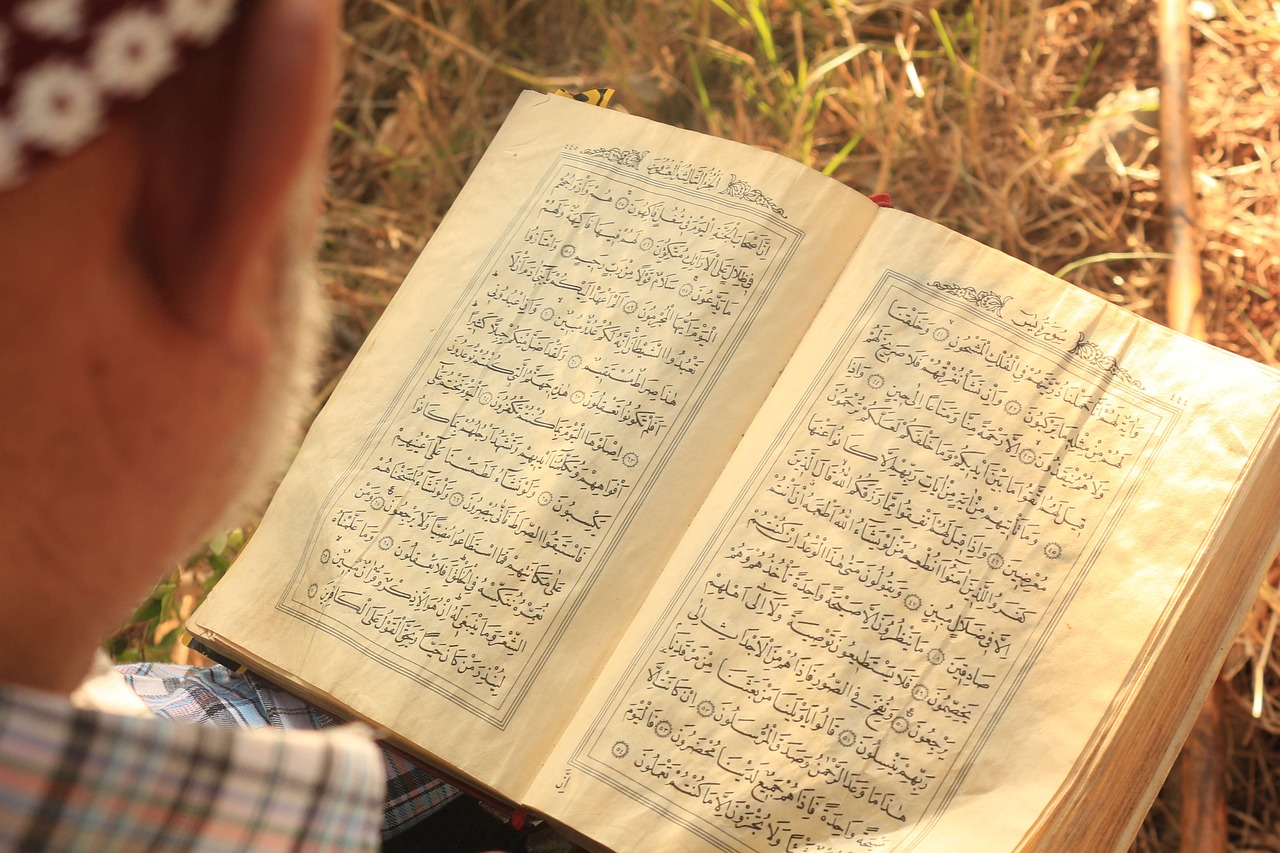 ٤٤٤
سُورَةُ يٰسٓ
وَاٰيَةٌ لَهُمْ اَنَّا حَمَلْنَا ذُرِّيَّتَهُمْ فِي الْفُلْكِ الْمَشْحُونِ ﴿٤١﴾ وَخَلَقْنَا
لَهُمْ مِنْ مِثْلِهِ مَا يَرْكَبُونَ ﴿٤٢﴾ وَاِنْ نَشَأْ نُغْرِقْهُمْ فَلَا صَرِيخَ لَهُمْ
وَلَا هُمْ يُنْقَذُونَ ﴿٤٣﴾ اِلَّا رَحْمَةً مِنَّا وَمَتَاعًا اِلٰى حِينٍ ﴿٤٤﴾ وَاِذَا
قِيلَ لَهُمُ اتَّقُوا مَا بَيْنَ اَيْدِيكُمْ وَمَا خَلْفَكُمْ لَعَلَّكُمْ تُرْحَمُونَ
﴿٤٥﴾ وَمَا تَأْتِيهِمْ مِنْ اٰيَةٍ مِنْ اٰيَاتِ رَبِّهِمْ اِلَّا كَانُوا عَنْهَا
مُعْرِضِينَ ﴿٤٦﴾ وَاِذَا قِيلَ لَهُمْ اَنْفِقُوا مِمَّا رَزَقَكُمُ اللّٰهُ قَالَ الَّذِينَ
كَفَرُوا لِلَّذِينَ اٰمَنُوا اَنُطْعِمُ مَنْ لَوْ يَشَاءُ اللّٰهُ اَطْعَمَهُ اِنْ اَنْتُمْ
اِلَّا فِي ضَلَالٍ مُبِينٍ ﴿٤٧﴾ وَيَقُولُونَ مَتٰى هٰذَا الْوَعْدُ اِنْ كُنْتُمْ
صَادِقِينَ ﴿٤٨﴾ مَا يَنْظُرُونَ اِلَّا صَيْحَةً وَاحِدَةً تَأْخُذُهُمْ وَهُمْ
يَخِصِّمُونَ ﴿٤٩﴾ فَلَا يَسْتَطِيعُونَ تَوْصِيَةً وَلَا اِلٰى اَهْلِهِمْ
يَرْجِعُونَ ﴿٥٠﴾ وَنُفِخَ فِي الصُّورِ فَاِذَا هُمْ مِنَ الْاَجْدَاثِ اِلٰى
رَبِّهِمْ يَنْسِلُونَ ﴿٥١﴾ قَالُوا يَا وَيْلَنَا مَنْ بَعَثَنَا مِنْ مَرْقَدِنَا
هٰذَا مَا وَعَدَ الرَّحْمٰنُ وَصَدَقَ الْمُرْسَلُونَ ﴿٥٢﴾ اِنْ كَانَتْ اِلَّا
صَيْحَةً وَاحِدَةً فَاِذَا هُمْ جَمِيعٌ لَدَيْنَا مُحْضَرُونَ ﴿٥٣﴾ فَالْيَوْمَ
شَيْئًا وَلَا تُجْزَوْنَ اِلَّا مَا كُنْتُمْ تَعْمَلُونَ ﴿٥٤﴾
اِنَّ
٤٤٥
اَلْجُزْءُ الثَّالِثُ وَالْعِشْرُونَ
اِنَّ اَصْحَابَ الْجَنَّةِ الْيَوْمَ فِي شُغُلٍ فَاكِهُونَ ﴿٥٥﴾ هُمْ وَاَزْوَاجُهُمْ
فِي ظِلَالٍ عَلَى الْاَرَائِكِ مُتَّكِؤُنَ ﴿٥٦﴾ لَهُمْ فِيهَا فَاكِهَةٌ وَلَهُمْ
مَا يَدَّعُونَ ﴿٥٧﴾ سَلَامٌ قَوْلًا مِنْ رَبٍّ رَحِيمٍ ﴿٥٨﴾ وَامْتَازُوا
الْيَوْمَ اَيُّهَا الْمُجْرِمُونَ ﴿٥٩﴾ اَلَمْ اَعْهَدْ اِلَيْكُمْ يَا بَنِي اٰدَمَ اَنْ لَا
تَعْبُدُوا الشَّيْطَانَ اِنَّهُ لَكُمْ عَدُوٌّ مُبِينٌ ﴿٦٠﴾ وَاَنِ اعْبُدُونِي
هٰذَا صِرَاطٌ مُسْتَقِيمٌ ﴿٦١﴾ وَلَقَدْ اَضَلَّ مِنْكُمْ جِبِلًّا كَثِيرًا
اَفَلَمْ تَكُونُوا تَعْقِلُونَ ﴿٦٢﴾ هٰذِهِ جَهَنَّمُ الَّتِي كُنْتُمْ تُوعَدُونَ
﴿٦٣﴾ اِصْلَوْهَا الْيَوْمَ بِمَا كُنْتُمْ تَكْفُرُونَ ﴿٦٤﴾ اَلْيَوْمَ نَخْتِمُ عَلٰى
اَفْوَاهِهِمْ وَتُكَلِّمُنَا اَيْدِيهِمْ وَتَشْهَدُ اَرْجُلُهُمْ بِمَا كَانُوا
يَكْسِبُونَ ﴿٦٥﴾ وَلَوْ نَشَاءُ لَطَمَسْنَا عَلٰى اَعْيُنِهِمْ
فَاسْتَبَقُوا الصِّرَاطَ فَاَنّٰى يُبْصِرُونَ ﴿٦٦﴾ وَلَوْ نَشَاءُ لَمَسَخْنَاهُمْ
عَلٰى مَكَانَتِهِمْ فَمَا اسْتَطَاعُوا مُضِيًّا وَلَا يَرْجِعُونَ ﴿٦٧﴾ وَمَنْ
نُعَمِّرْهُ نُنَكِّسْهُ فِي الْخَلْقِ اَفَلَا يَعْقِلُونَ ﴿٦٨﴾ وَمَا عَلَّمْنَاهُ
الشِّعْرَ وَمَا يَنْبَغِي لَهُ اِنْ هُوَ اِلَّا ذِكْرٌ وَقُرْاٰنٌ مُبِينٌ ﴿٦٩﴾
لِيُنْذِرَ مَنْ كَانَ حَيًّا وَيَحِقَّ الْقَوْلُ عَلَى الْكَافِرِينَ ﴿٧٠﴾